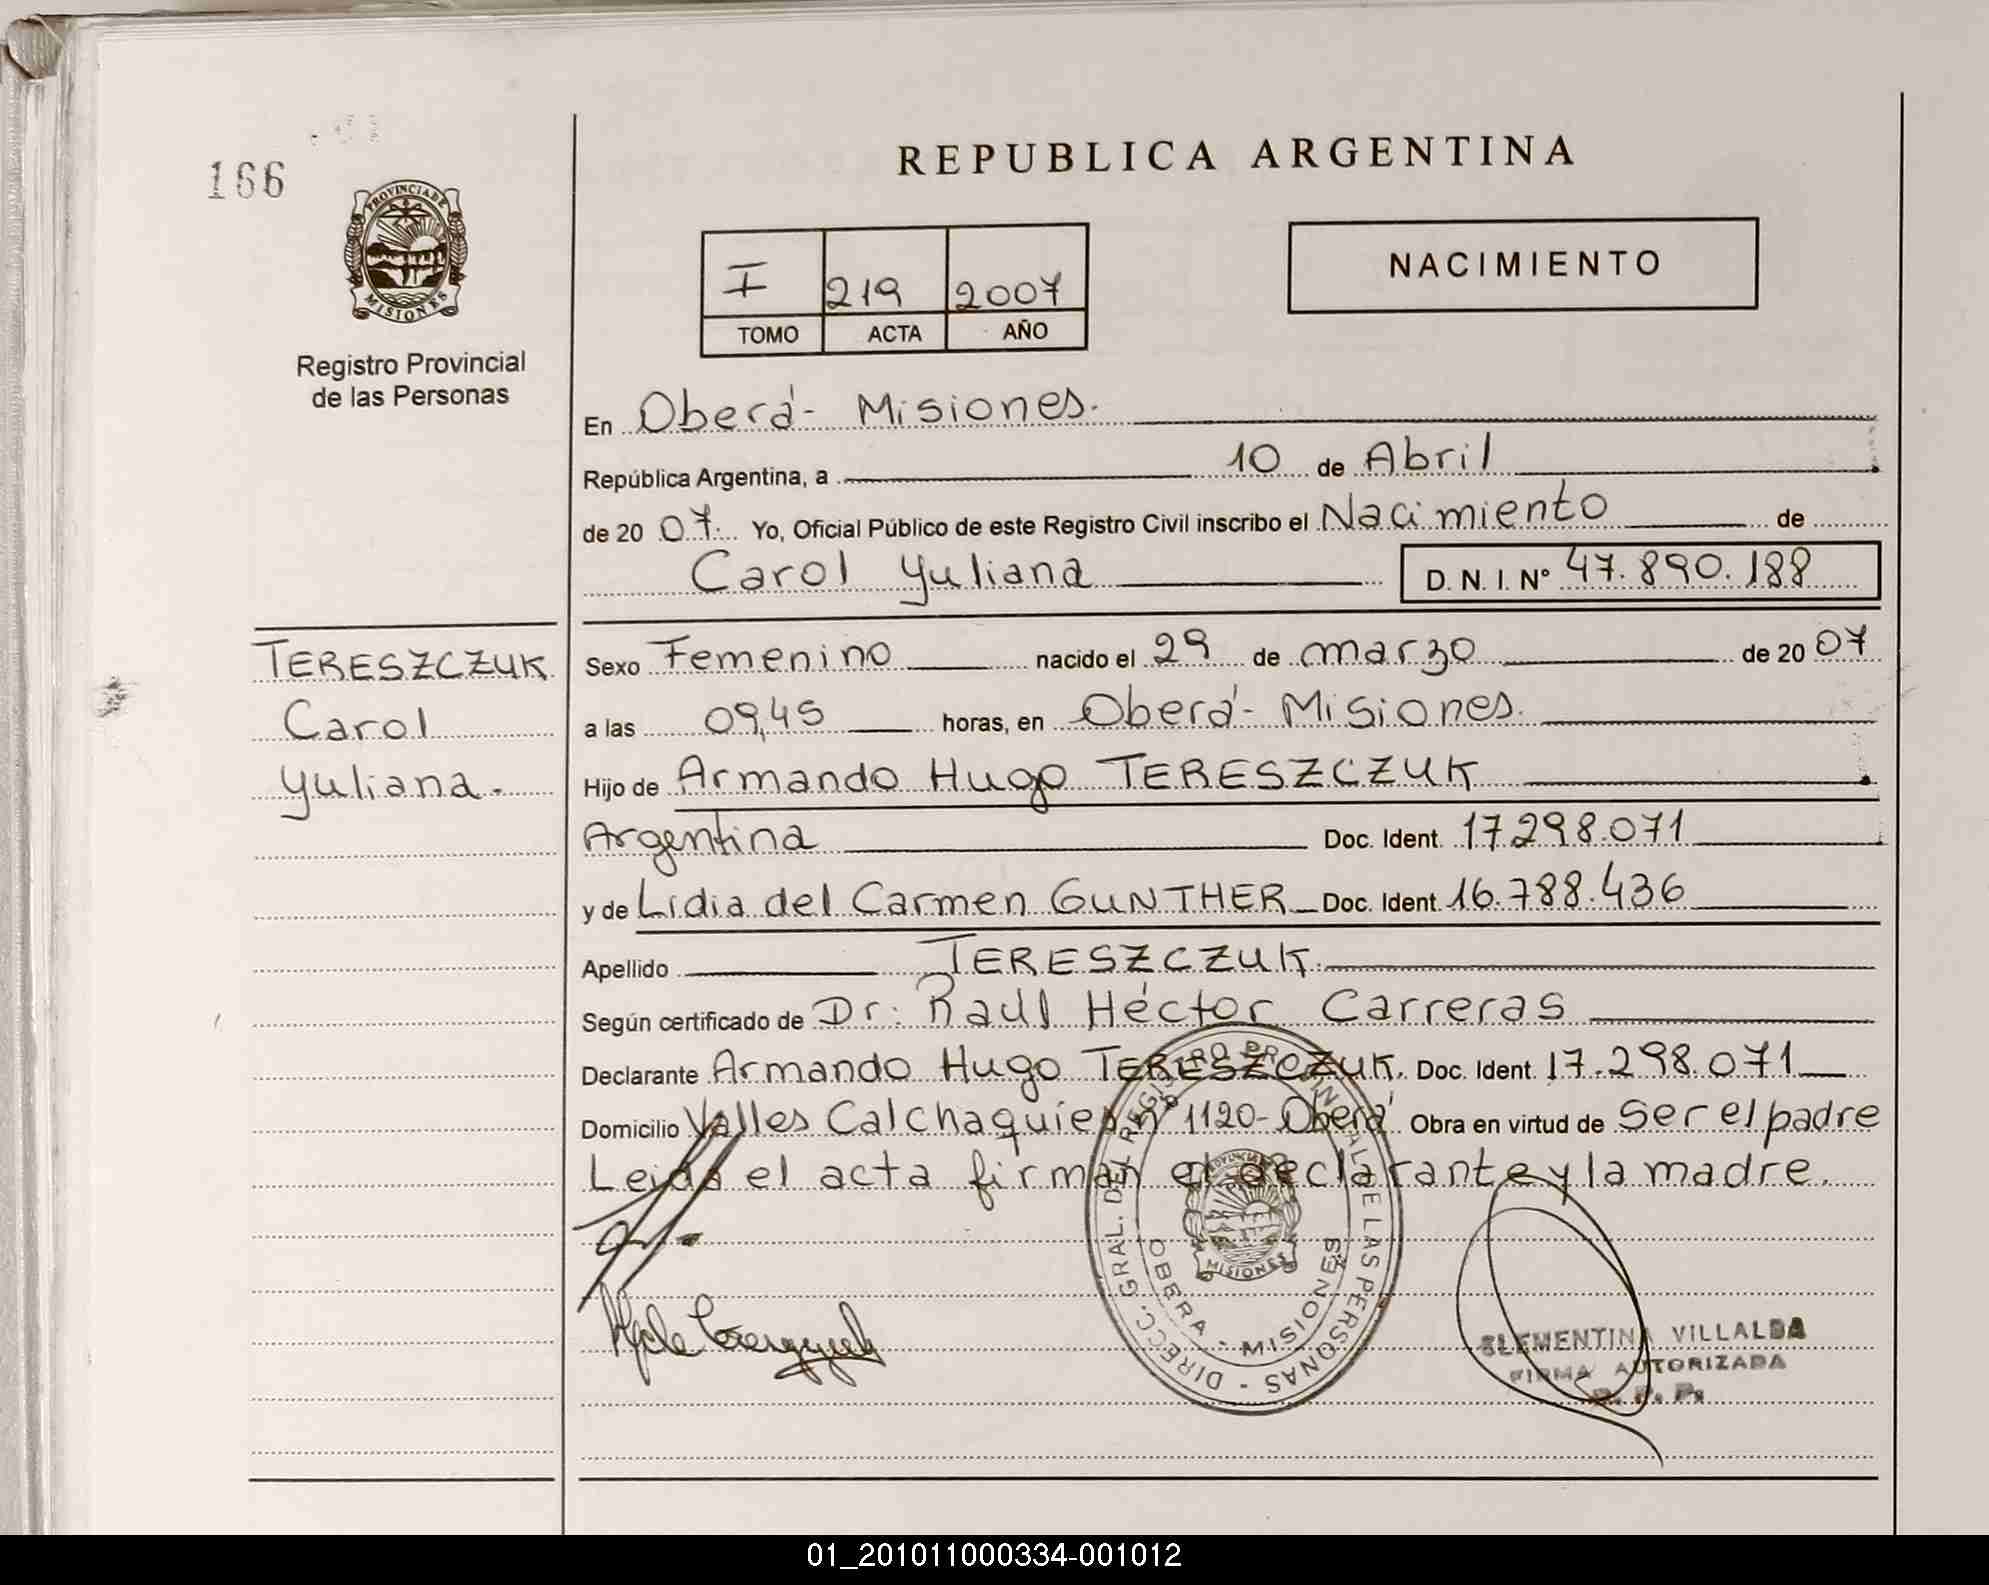 166
PROVINCIA DE
MISIONES
Registro Provincial
de las Personas
REPUBLICA ARGENTINA
I 219 2007
TOMO ACTA AÑO
NACIMIENTO
En Oberá - Misiones.
República Argentina, a 10 de Abril
de 20 07. Yo, Oficial Público de este Registro Civil inscribo el Nacimiento de
Carol Yuliana D. N. I. N° 47.890.188
TERESZCZUK
Carol
Yuliana.
Sexo Femenino nacido el 29 de marzo de 20 07
a las 09,45 horas, en Oberá - Misiones.
Hijo de Armando Hugo TERESZCZUK
Argentina Doc. Ident. 17.298.071
y de Lidia del Carmen GUNTHER Doc. Ident. 16.788.436
Apellido TERESZCZUK.
Según certificado de Dr: Raúl Héctor Carreras
Declarante Armando Hugo TERESZCZUK. Doc. Ident. 17.298.071
Domicilio Valles Calchaquies n° 1120 - Oberá Obra en virtud de Ser el padre
Leida el acta firman el declarante y la madre.
DIRECC. GRAL. DEL REGISTRO PROVINCIAL DE LAS PERSONAS -
PROVINCIA DE
MISIONES
OBERA - MISIONES
CLEMENTINA VILLALBA
FIRMA AUTORIZADA
R. P. P.
01_201011000334-001012